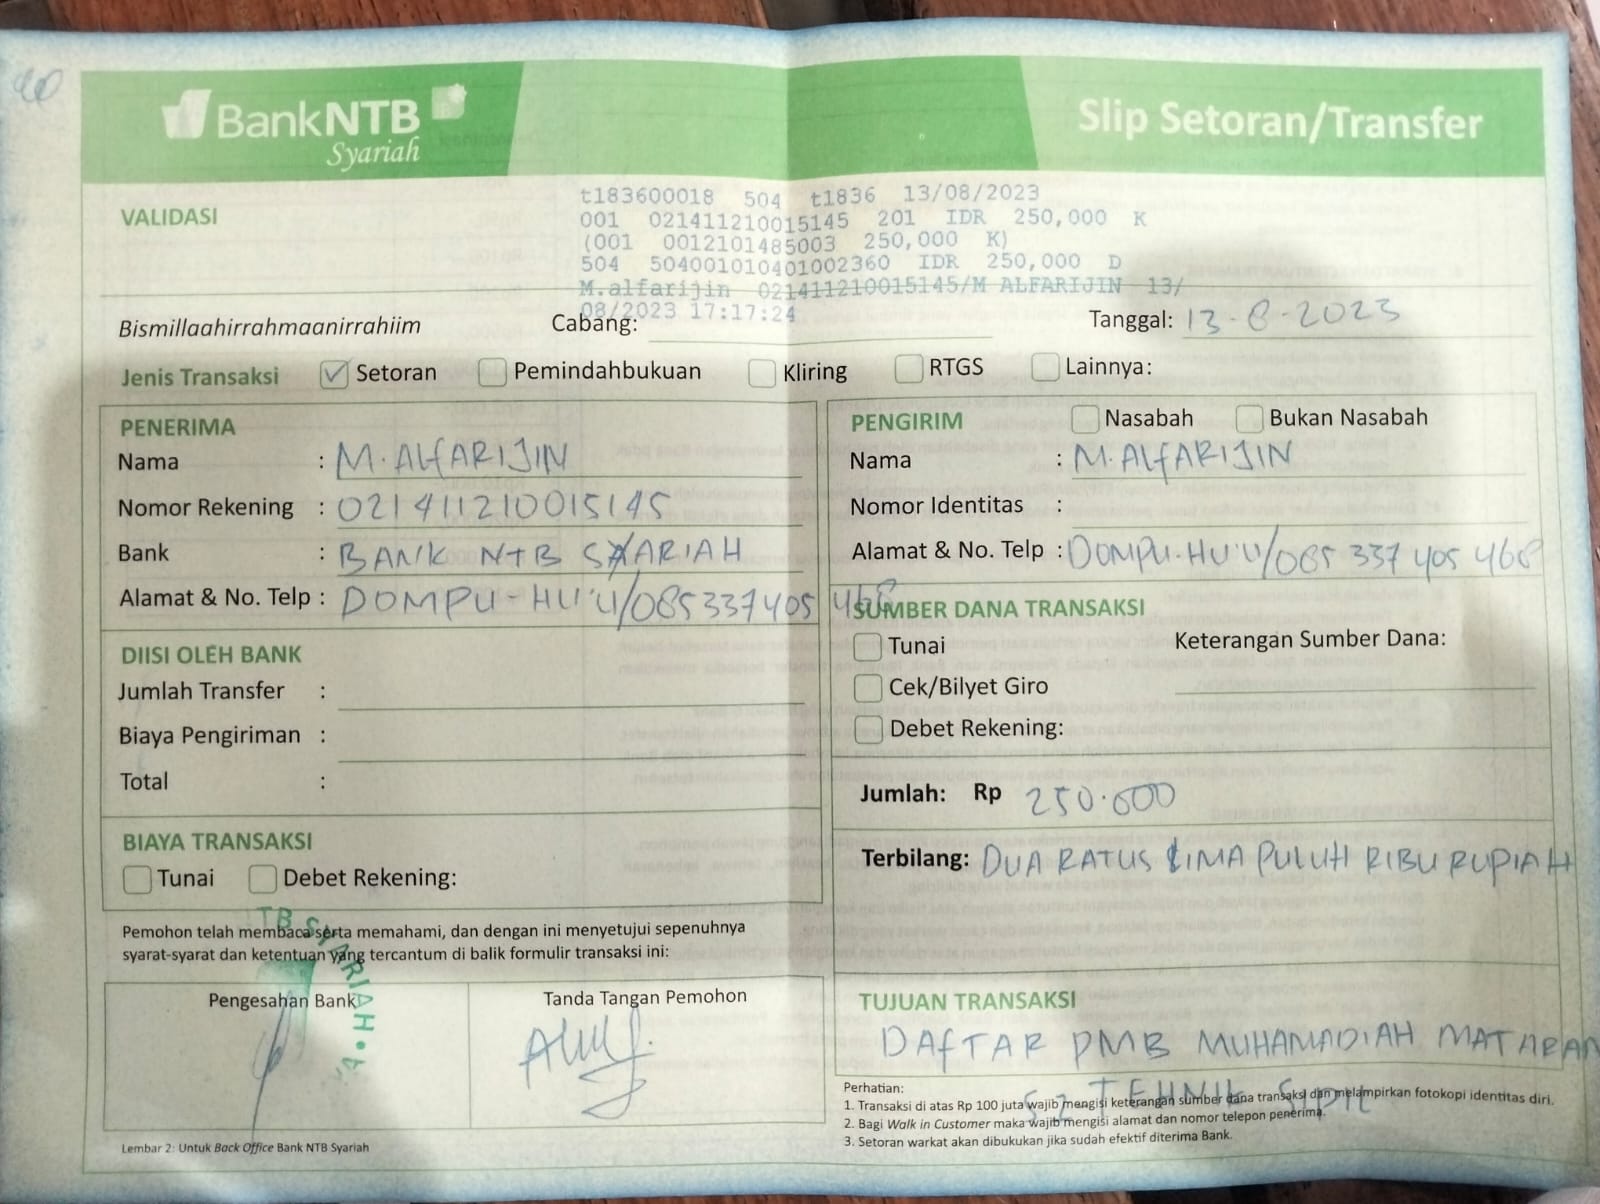 BankNTB
Syariah
Slip Setoran/Transfer
VALIDASI
t183600018 504 t1836 13/08/2023
001 021411210015145 201 IDR 250,000 K
(001 0012101485003 250,000 K)
504 504001010401002360 IDR 250,000 D
M.alfarijin 021411210015145/M ALFARIJIN 13/
08/2023 17:17:24
Bismillaahirrahmaanirrahiim Cabang: Tanggal: 13-8-2023
Jenis Transaksi Setoran Pemindahbukuan Kliring RTGS Lainnya:
PENERIMA
Nama : M. ALfARIJIN
Nomor Rekening : 021411210015145
Bank : BANK NTB SYARIAH
Alamat & No. Telp : DOMPU-HU'U/085337405 468
DIISI OLEH BANK
Jumlah Transfer :
Biaya Pengiriman :
Total :
BIAYA TRANSAKSI
Tunai Debet Rekening:
Pemohon telah membaca serta memahami, dan dengan ini menyetujui sepenuhnya
syarat-syarat dan ketentuan yang tercantum di balik formulir transaksi ini:
Pengesahan Bank Tanda Tangan Pemohon
TB SYARIAH
Lembar 2: Untuk Back Office Bank NTB Syariah
PENGIRIM Nasabah Bukan Nasabah
Nama : M. ALfARIJIN
Nomor Identitas :
Alamat & No. Telp : DOMPU-HU'U/085 337 405 468
SUMBER DANA TRANSAKSI
Tunai Keterangan Sumber Dana:
Cek/Bilyet Giro
Debet Rekening:
Jumlah: Rp 250.000
Terbilang: DUA RATUS LIMA PULUH RIBU RUPIAH
TUJUAN TRANSAKSI
DAfTAR PMB MUHAMADIAH MATARAM
TEHNIK SIPIL
Perhatian:
1. Transaksi di atas Rp 100 juta wajib mengisi keterangan sumber dana transaksi dan melampirkan fotokopi identitas diri.
2. Bagi Walk in Customer maka wajib mengisi alamat dan nomor telepon penerima.
3. Setoran warkat akan dibukukan jika sudah efektif diterima Bank.